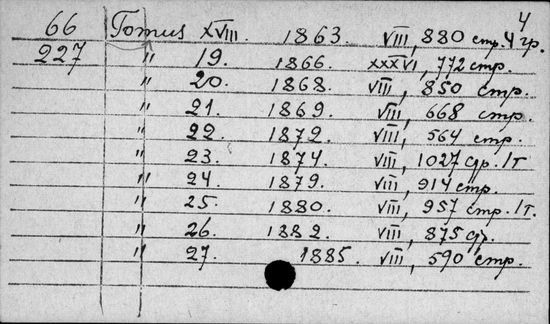 4
66 Tomus XVIII. 1863. VIII, 880 стр. 4 гр.
227 " 19. 1866. XXXVI, 772 стр.
" 20. 1868. VIII, 850 стр.
" 21. 1869. VIII, 668 стр.
" 22. 1872. VIII, 564 стр.
" 23. 1874. VIII, 1027 стр. 1т
" 24. 1879. VIII, 914 стр.
" 25. 1880. VIII, 957 стр. 1т.
" 26. 1882. VIII, 875 стр.
" 27. 1885. VIII, 590 стр.